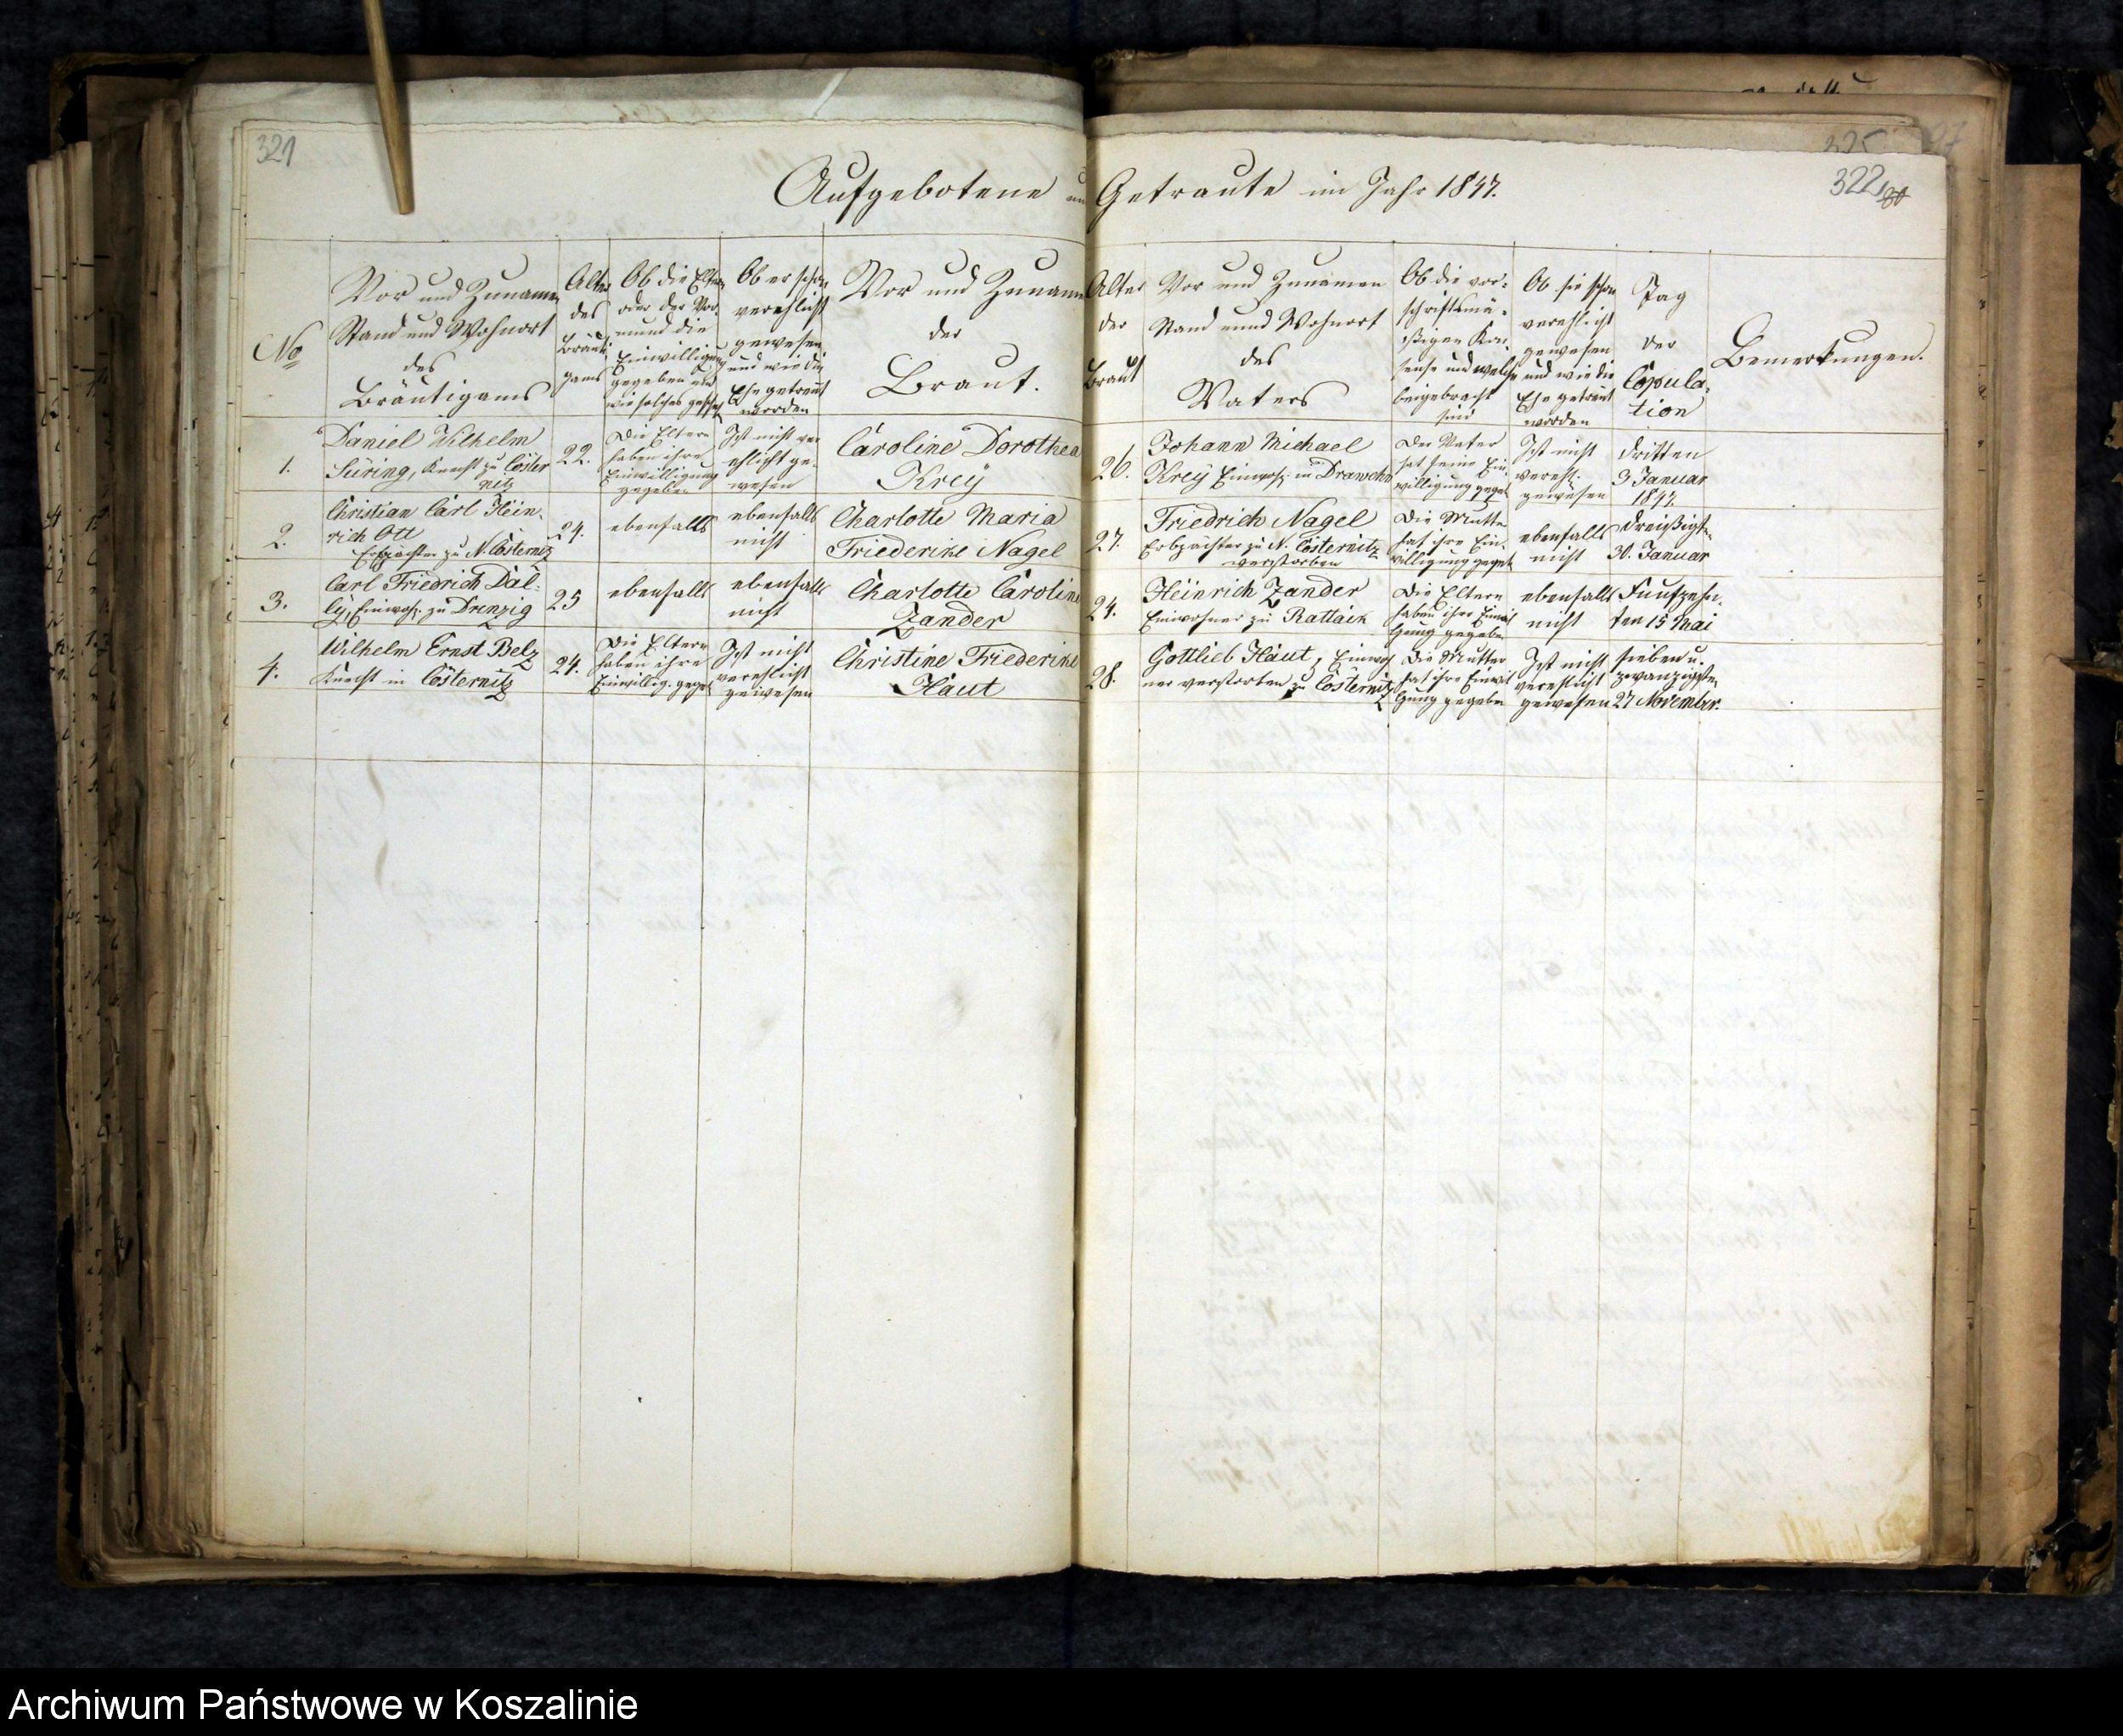 321
322
Aufgebotene und Getraute im Jahr 1847.
No
Vor und Zunamen
Stand und Wohnort
des
Bräutigams
Alter
des
Bräuti-
gams
Ob die Eltern
oder der Vor-
mund die
Einwilligung
gegeben und
wie solches gesch.
Ob er schon
verehlicht
gewesen
und wie die
Ehe getrennt
worden
Vor und Zuname
der
Braut.
Alter
der
Braut
Vor und Zunamen
Stand und Wohnort
des
Vaters
Ob die vor-
schriftsmä-
ßigen Kon-
sense und welche
beigebracht
sind
Ob sie schon
verehlicht
gewesen
und wie die
Ehe getrennt
worden
Tag
der
Copula-
tion
Bemerkungen.
1.
Daniel Wilhelm
Süring, Knecht zu Cöster
nitz
22.
Die Eltern
haben ihre
Einwilligung
gegeben
Ist nicht ver
ehlicht ge-
wesen
Caroline Dorothea
Krey
26.
Johann Michael
Krey Einwoh. in Drawehn
Der Vater
hat seine Ein
willigung gegeb
Ist nicht
verehl.
gewesen
dritten
3 Januar
1847.
2.
Christian Carl Hein-
rich Ott
Erbpächter zu N. Cösternitz
24.
ebenfalls
ebenfalls
nicht
Charlotte Maria
Friederike Nagel
27.
Friedrich Nagel
Erbpächter zu N. Cösternitz
verstorben
Die Mutter
hat ihre Ein-
willigung gegeb
ebenfalls
nicht
dreißigsten
30. Januar
3.
Carl Friedrich Däl-
ly, Einwoh. zu Drenzig
25
ebenfalls
ebenfalls
nicht
Charlotte Caroline
Zander
24.
Heinrich Zander
Einwohner zu Rattaik
Die Eltern
haben ihre Einwil
gung gegeben
ebenfalls
nicht
Funfzehn-
ten 15 Mai
4.
Wilhelm Ernst Belz
Knecht in Cösternitz
24.
Die Eltern
haben ihre
Einwillig. gegeb
Ist nicht
verehlicht
gewesen
Christine Friederike
Haut
28.
Gottlieb Haut, Einwoh
ner verstorben zu Cösternitz
Die Mutter
hat ihre Einwil
gung gegeben
Ist nicht
verehlicht
gewesen
sieben u.
zwanzigsten
27 November.
Archiwum Państwowe w Koszalinie